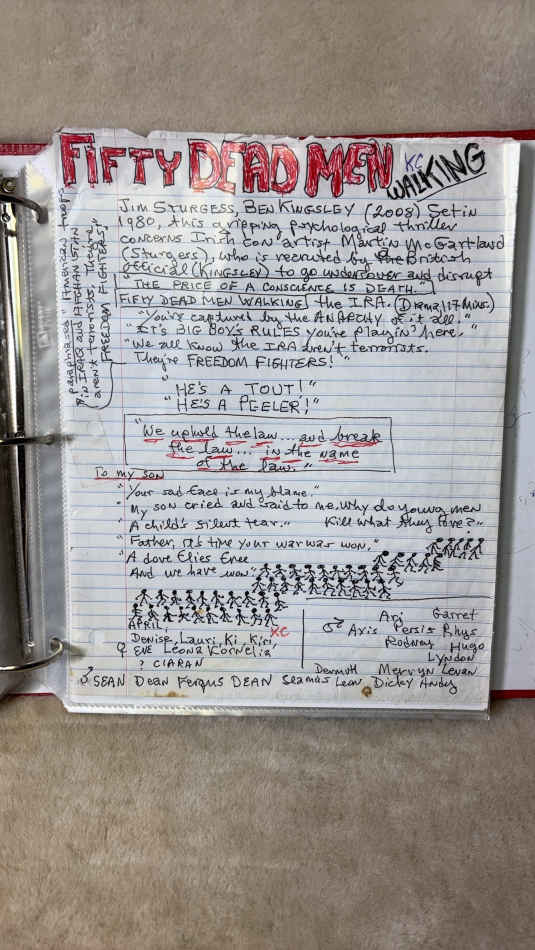 FIFTY DEAD MEN KC WALKING
JIM STURGESS, BEN KINGSLEY (2008) Set in
1980, this gripping psychological thriller
concerns Irish con artist Martin McGartland
(Sturgess), who is recruited by a British
official (KINGSLEY) to go undercover and disrupt
"THE PRICE OF A CONSCIENCE IS DEATH."
FIFTY DEAD MEN WALKING the IRA. (Drama, 117 Mins.)
"You're captured by the ANARCHY of it all."
"It's BIG BOY'S RULES you're playin' here."
"We all know the IRA aren't terrorists.
They're FREEDOM FIGHTERS!"
"HE'S A TOUT!"
"HE'S A PEELER!"
"We uphold the law... and break
the law... in the name
of the law."
paraphrased "American troops
in IRAQ and AFGHANISTAN
aren't terrorists, They're
FREEDOM FIGHTERS!"
To my son
"Your sad face is my blame."
"My son cried and said to me, Why do young men
"A child's silent tear." Kill what they love?"
"Father, it's time your war was won,"
"A dove flies free
And we have won"
APRIL
Denise, Lauri, Ki, Kiri, KC
♀ EVE Leona Kornelia
? CIARAN
♂ Axis Ari Garret
Persis Rhys
Rodney Hugo
Lyndon
Dermott Mervyn Levan
♂ SEAN Dean Fergus DEAN Seamus Leon Dicky Andy